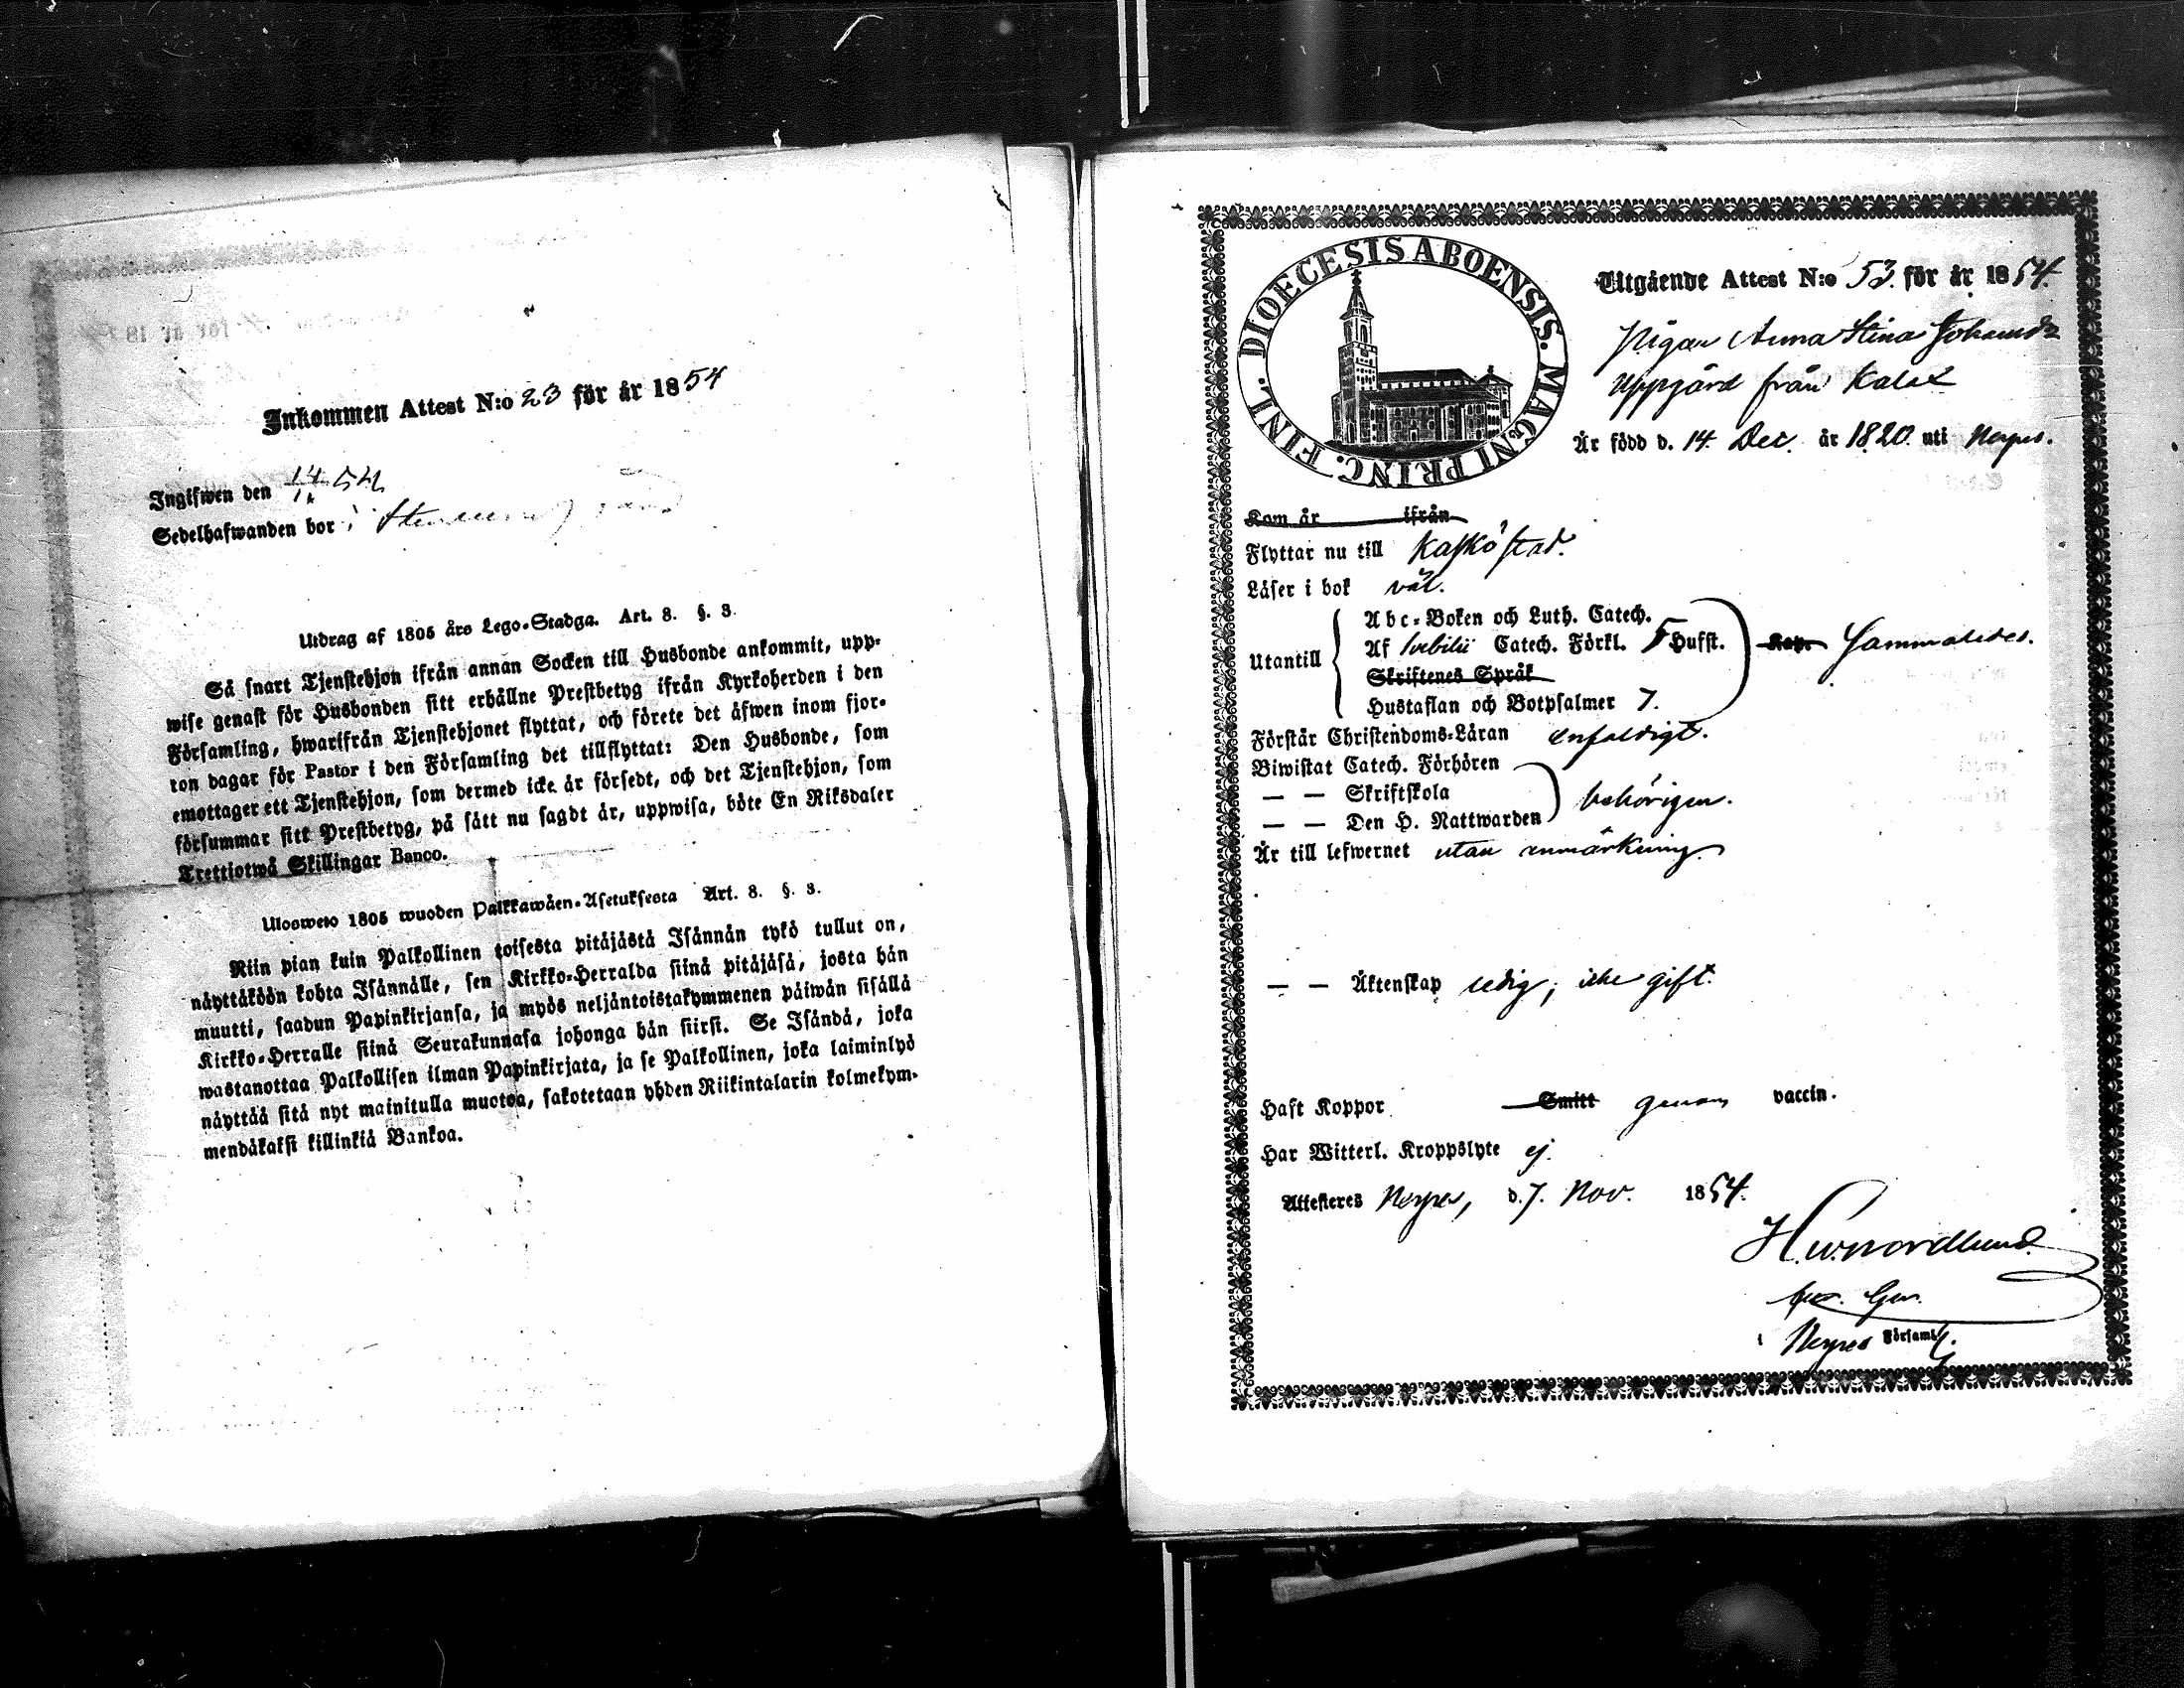 Inkommen Attest N:o 23 för år 1854
Ingifwen den 14 54
Sedelhafwanden bor i
Utdrag af 1805 års Lego-Stadga. Art. 8. §. 3.
Så snart Tjenstehjon ifrån annan Socken till Husbonde ankommit, upp-
wise genast för Husbonden sitt erhållne Prestbetyg ifrån Kyrkoherden i den
Församling, hwarifrån Tjenstehjonet flyttat, och förete det äfwen inom fjor-
ton dagar för Pastor i den Församling det tillflyttat: Den Husbonde, som
emottager ett Tjenstehjon, som dermed icke är försedt, och det Tjenstehjon, som
försummar sitt Prestbetyg, på sätt nu sagdt är, uppwisa, böte En Riksdaler
Trettiotwå Skillingar Banco.
Ulosweto 1805 wuoden Palkkawäen-Asetuksesta Art. 8. §. 3.
Niin pian kuin Palkollinen toisesta pitäjästä Isännän tykö tullut on,
näyttäköön kohta Isännälle, sen Kirkko-Herralda siinä pitäjäsä, josta hän
muutti, saadun Papinkirjansa, ja myös neljäntoistakymmenen päiwän sisällä
Kirkko-Herralle siinä Seurakunnasa johonga hän siirsi. Se Isändä, joka
wastanottaa Palkollisen ilman Papinkirjata, ja se Palkollinen, joka laiminlyö
näyttää sitä nyt mainitulla muotoa, sakotetaan yhden Riikintalarin kolmekym-
mendäkaksi killinkiä Bankoa.
DIOECESIS ABOENSIS. MAGNI PRINC. FINL.
Utgående Attest N:o 53. för år 1854.
Pigan Anna Stina Johansdr
Uppgård från Kalax
Är född d. 14. Dec. år 1820. uti Nerpes.
Kom år ifrån
Flyttar nu till Kaskö stad.
Läser i bok väl.
Utantill
Abc-Boken och Luth. Catech.
Af Svebilii Catech. Förkl. 5 Hufst.
Skriftenes Språk
Hustaflan och Botpsalmer 7.
Kap. Sammaledes.
Förstår Christendoms-Läran enfaldigt.
Biwistat Catech. Förhören
— — Skriftskola
— — Den H. Nattwarden
behörigen.
Är till lefwernet utan anmärkning.
— — Äktenskap ledig; icke gift.
Haft Koppor Smitt genom vaccin.
Har Witterl. Kroppslyte ej.
Attesteres Nerpes, d. 7. Nov. 1854.
H. W. Nordlund.
Nerpes Församl.